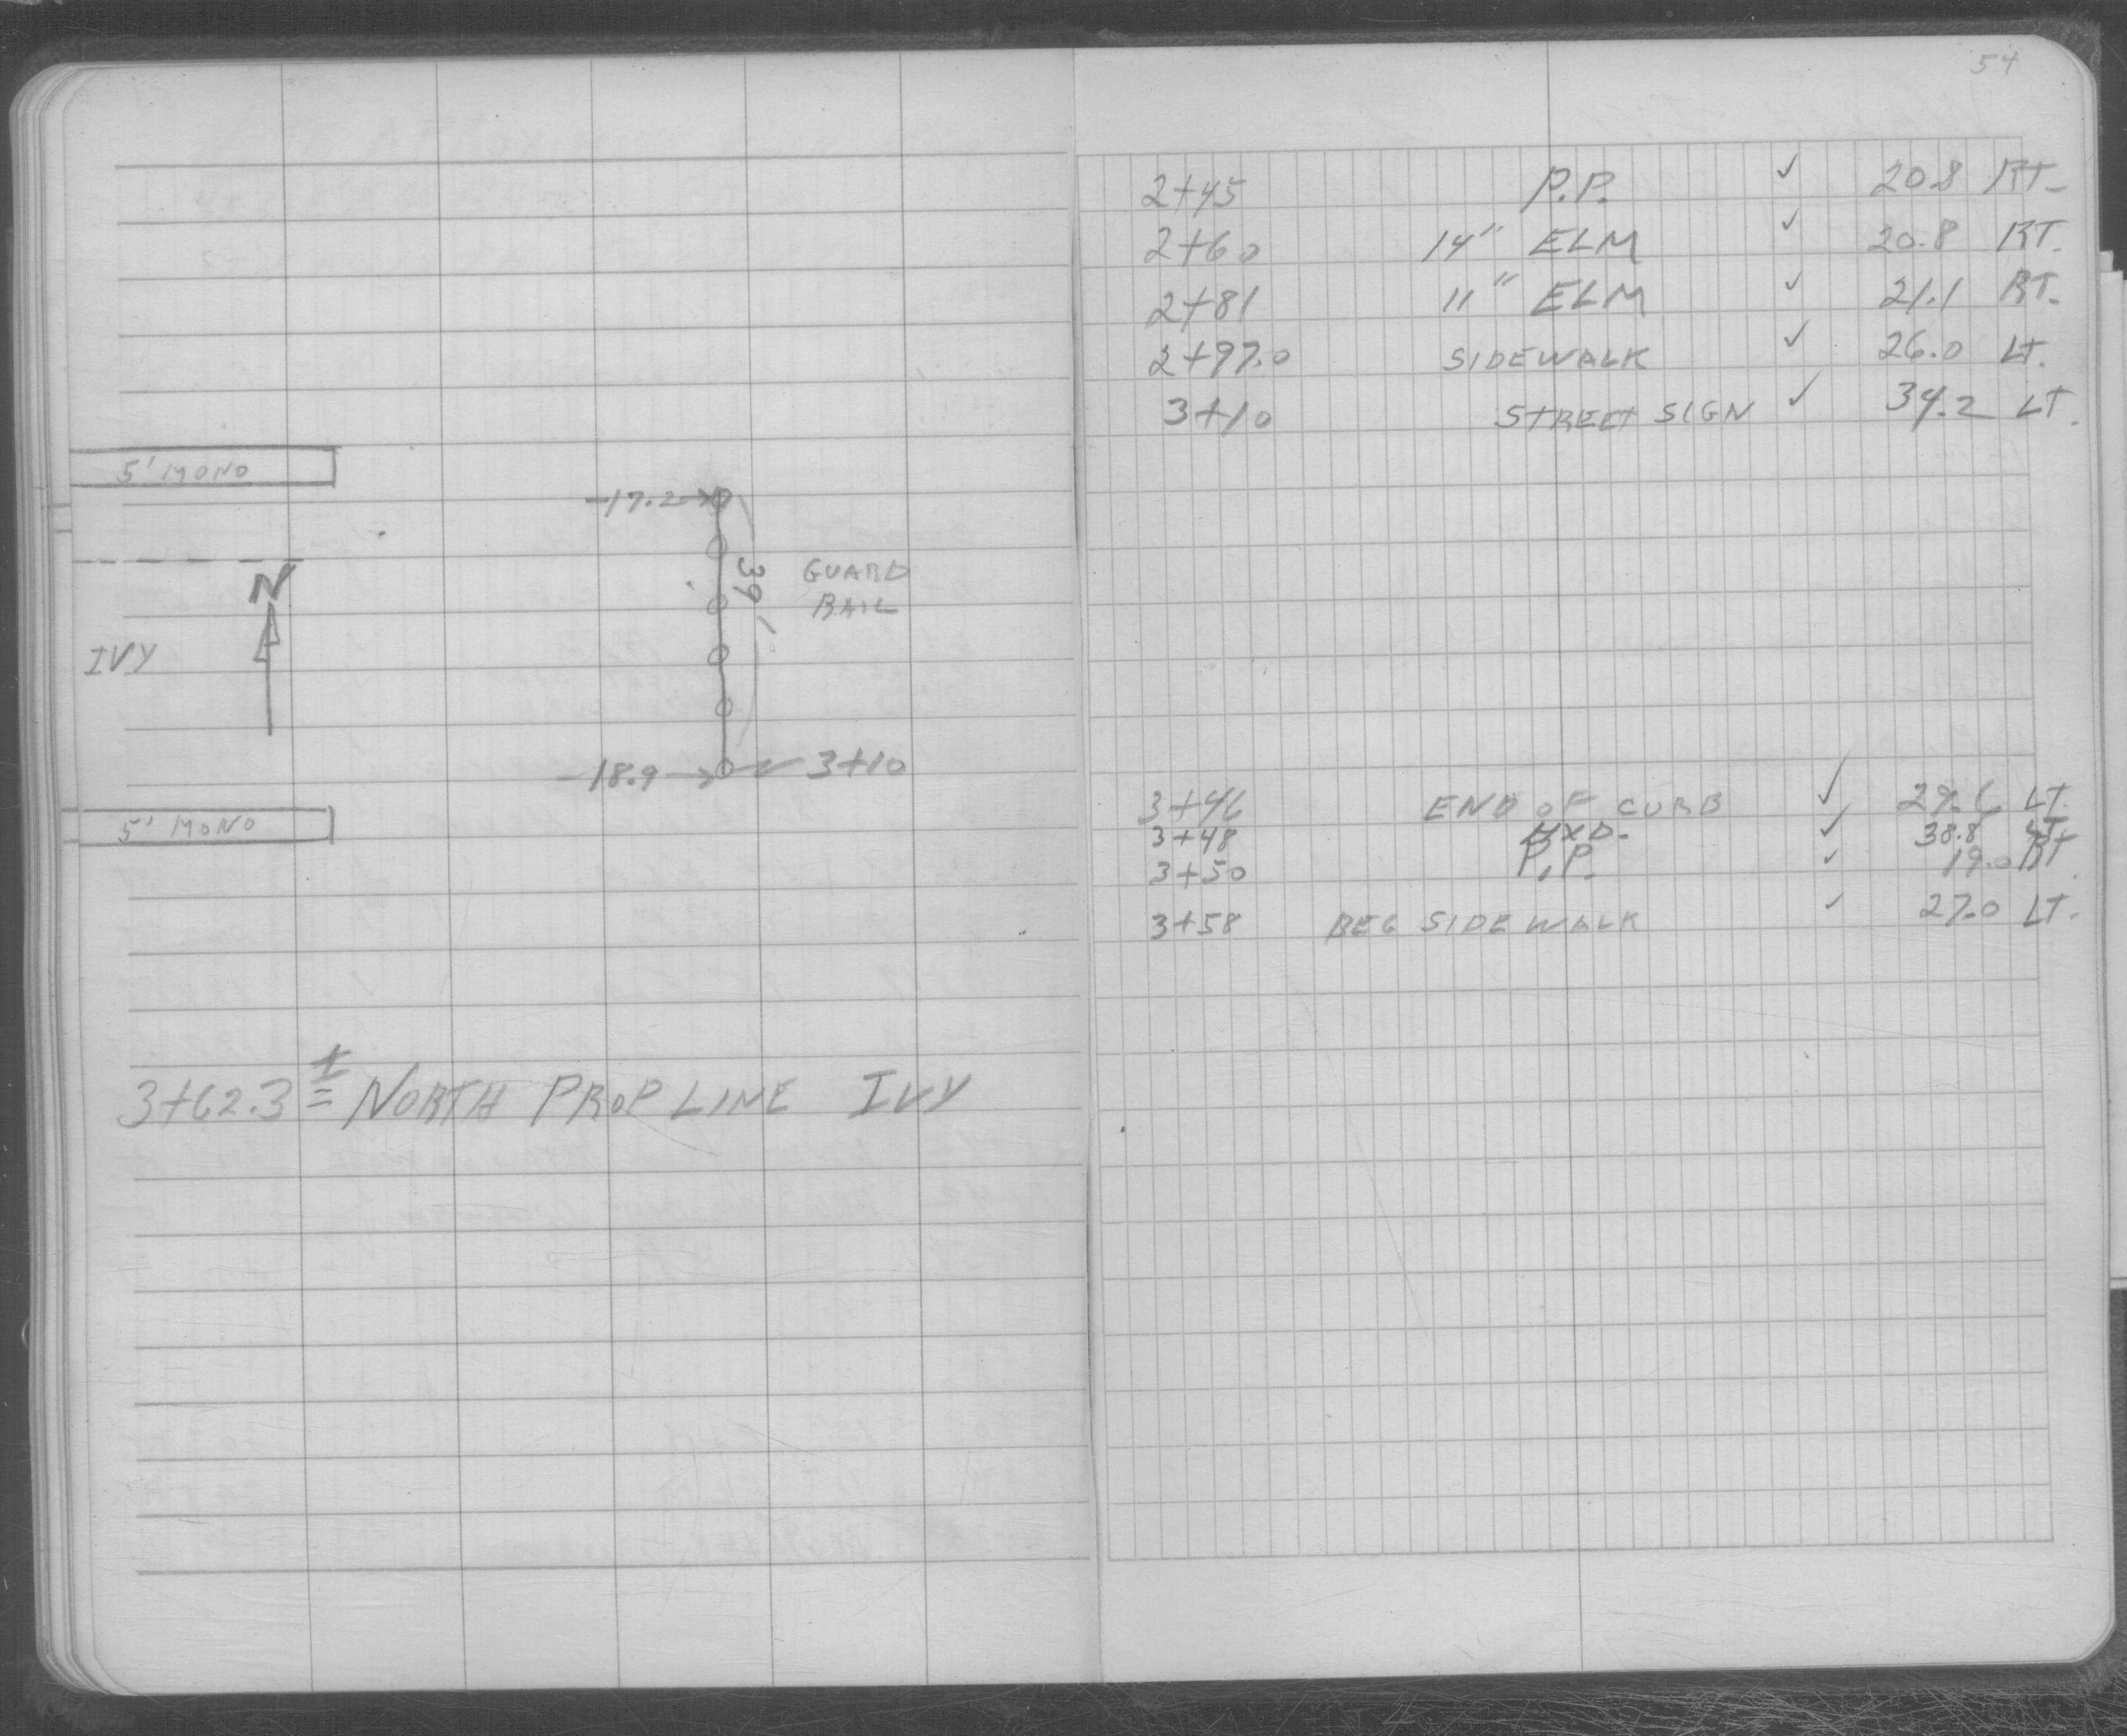 54
5' MONO
-17.2→
39'
GUARD
RAIL
N
IVY
-18.9→
3+10
5' MONO
3+62.3 ± = NORTH PROP LINE IVY
2+45 P.P. ✓ 20.8 RT.
2+60 14" ELM ✓ 20.8 RT.
2+81 11" ELM ✓ 21.1 RT.
2+97.0 SIDEWALK ✓ 26.0 LT.
3+10 STREET SIGN ✓ 34.2 LT.
3+46 END OF CURB ✓ LT.
3+48 HYD. ✓ 38.8 LT.
3+50 P.P. ✓ 19.0 RT.
3+58 BEG SIDEWALK ✓ 27.0 LT.